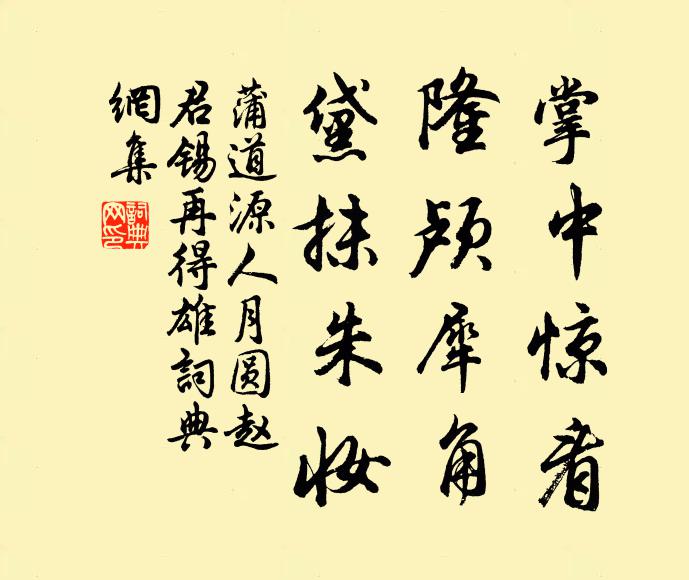 掌中惊看
隆颅犀角
黛抹朱妆
蒲道源人月圆赵
君锡再得雄詞典
網集
詞典網印